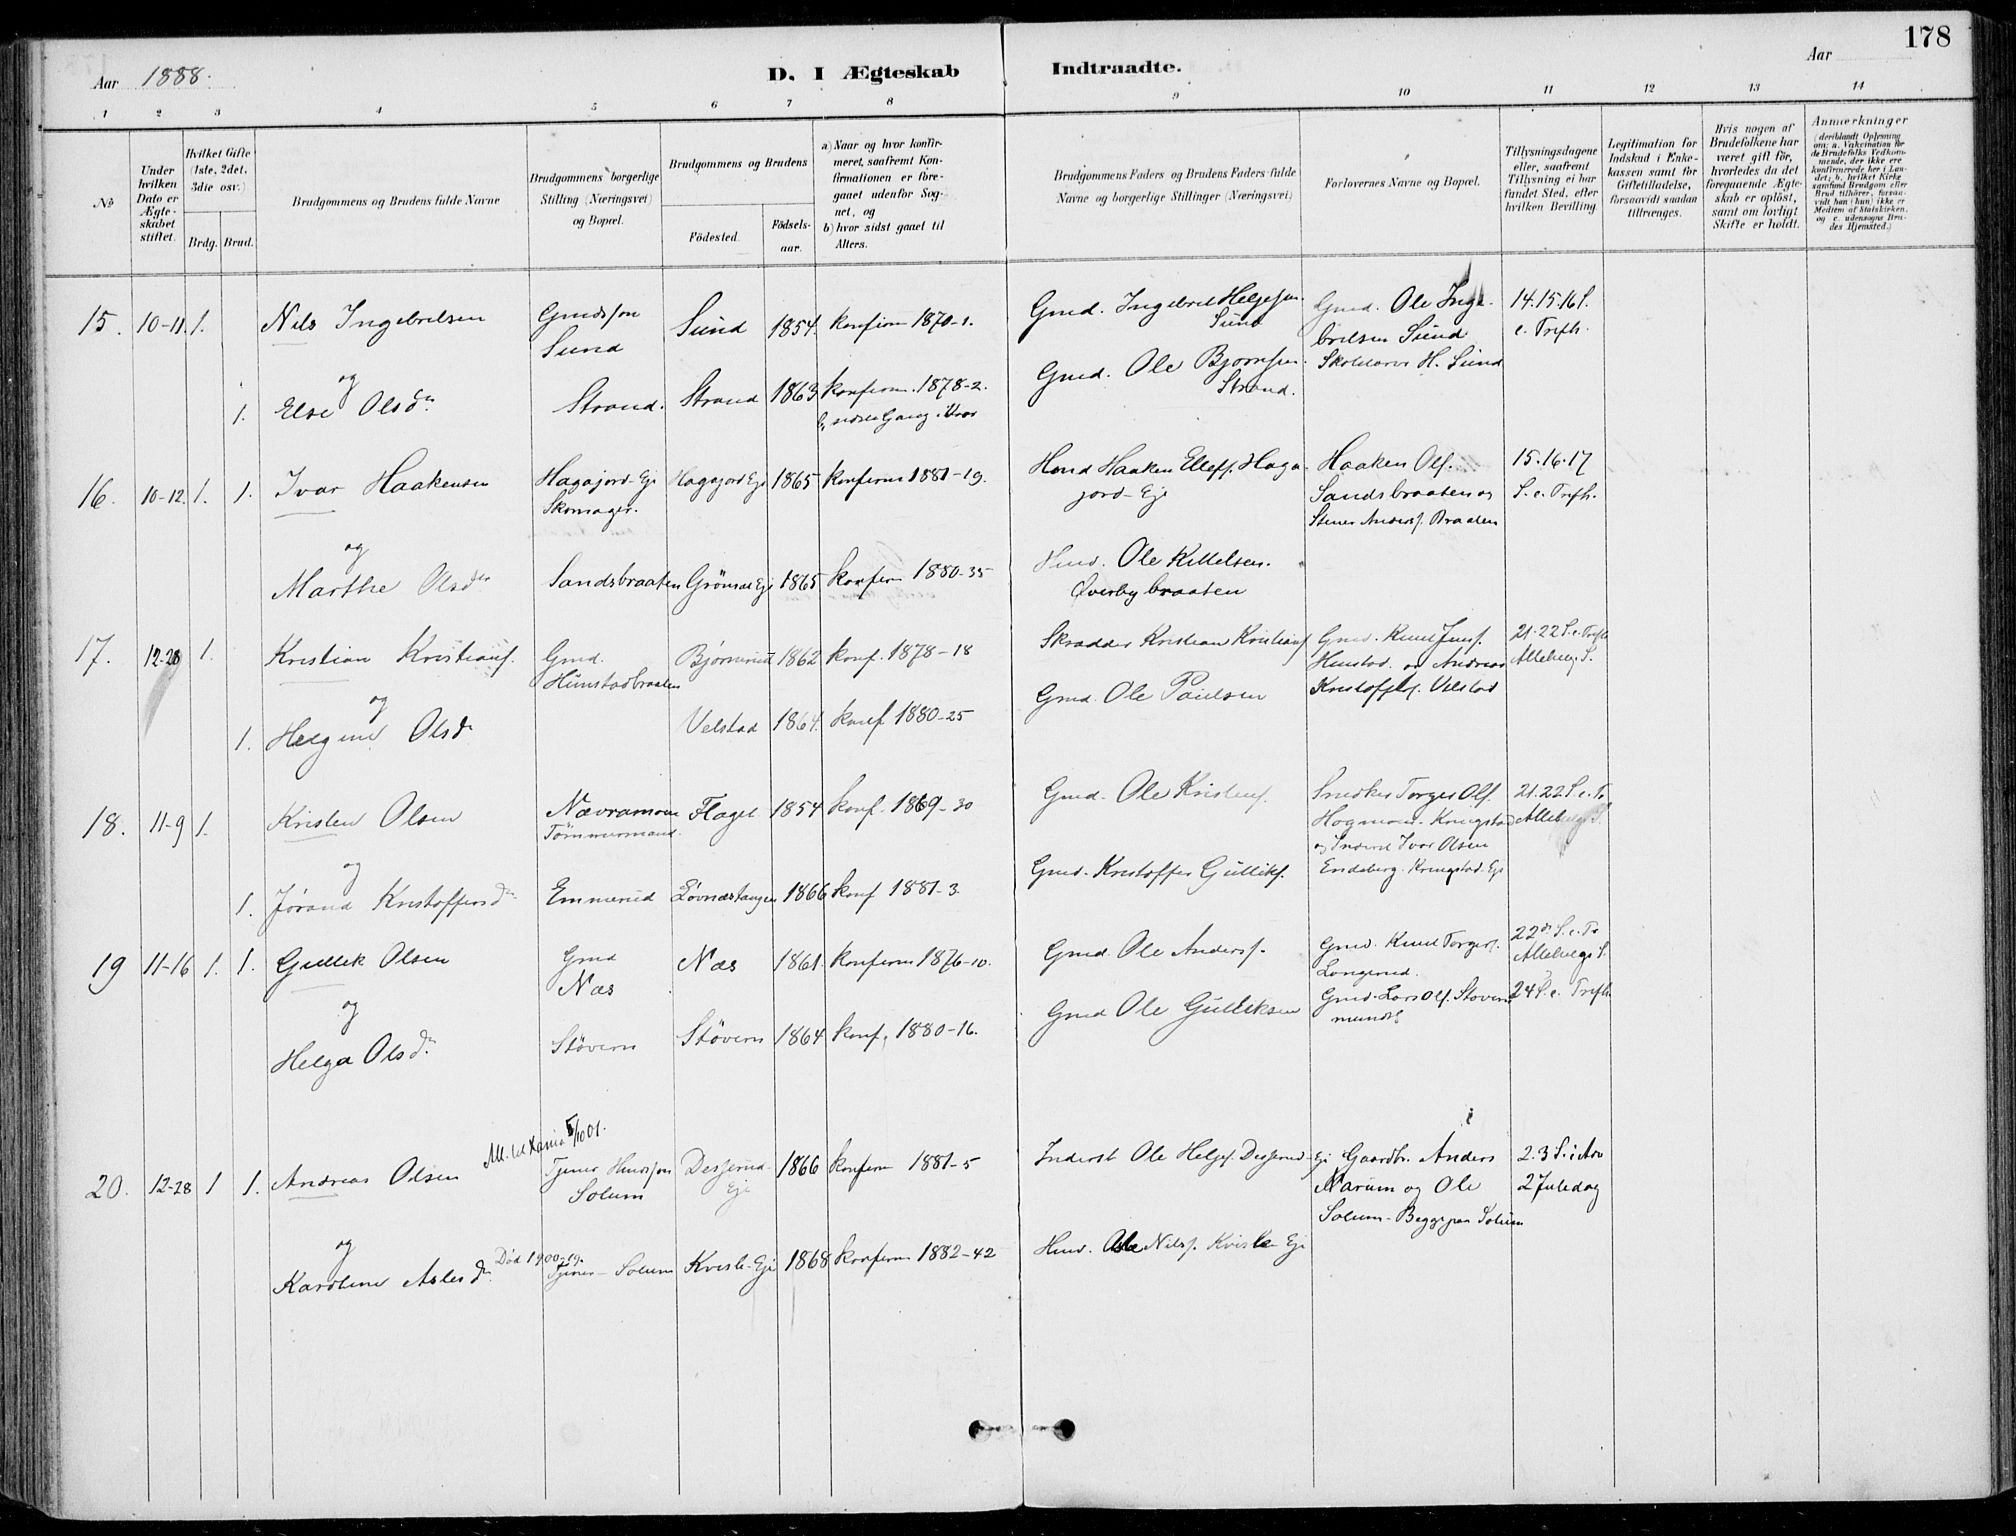 178
Aar 1888.
D. I Ægteskab Indtraadte.
Aar
1 2 3 4 5 6 7 8 9 10 11 12 13 14
No
Under hvilken Dato er Ægteskabet stiftet.
Hvilket Gifte (1ste, 2det, 3die osv.)
Brdg. Brud.
Brudgommens og Brudens fulde Navne
Brudgommens borgerlige Stilling (Næringsvei) og Bopæl.
Brudgommens og Brudens
Fødested. Fødselsaar.
a) Naar og hvor konfirmeret, saafremt Konfirmationen er foregaaet udenfor Sognet, og
b) hvor sidst gaaet til Alters.
Brudgommens Faders og Brudens Faders fulde Navne og borgerlige Stillinger (Næringsvei)
Forlovernes Navne og Bopæl.
Tillysningsdagene eller, saafremt Tillysning ei har fundet Sted, efter hvilken Bevilling.
Legitimation for Indskud i Enkekassen samt for Giftetilladelse, forsaavidt saadan tiltrænges.
Hvis nogen af Brudefolkene har været gift før, hvorledes da det foregaaende Ægteskab er opløst, samt om lovligt Skifte er holdt.
Anmærkninger
(deriblandt Oplysning om: a. Vakcination for de Brudefolks Vedkommende, der ikke ere konfirmerede her i Landet; b. hvilket Kirkesamfund Brudgom eller Brud tilhører, forsaavidt han (hun) ikke er Medlem af Statskirken, og c. udensogns Brudes Hjemsted.)
15. 10-11 1. Nils Ingebretsen Gmdssøn Sund Sund 1854. konfirm 1870-1. Gmd. Ingebret Helgesen Sund Gmd. Ole Ingebretsen Sund Skoleholder H. Sund 14.15.16 S. e. Trefh.
og
1. Else Olsdr Strand. Strand 1863 konfirm. 1878-2. Gmd. Ole Bjørnsen Strand.
16. 10-12. 1. 1. Ivar Haakensen Hagajord-Eje Skomager. Hagajord Eje 1865 konfirm 1881-19. Hmd Haaken Ellefs. Hagajord-Eje Haaken Ols. Sandsbraaten og Stener Anders. Braaten 15.16.17 S. e. Trefh.
og
Marthe Olsdr Sandsbraaten Grönsae Eje 1865 konfirm 1880-35 Hmd. Ole Kittelsen. Overbybraaten
17. 12-28 1. Kristian Kristians. Gmd. Hunstadbraaten Bjørnerud 1862 konf. 1878-18 Skrædder Kristian Kristians. Gmd. Knud Jens. Hunstad. og Andreas Kristoffers. Velstad 21.22 S. e. Trefh Allehelg. S.
og
1. Helgine Olsdr Velstad 1864. konf 1880-25 Gmd. Ole Paulsen
18. 11-9 1. Kristen Olsen Nævramoen Tømmermand. Flaget 1854 konf. 1869-30 Gmd. Ole Kristens. Snedker Torger Ols. Hogmoen-Kringstad og Inderst Ivar Olsen Endeberg-Kringstad-Eje 21.22 S. e. Tr. Allehelg. S.
og
1. Jørand Kristoffersdr Emmerud Løvnæstangen 1866 konf 1881-3 Gmd. Kristoffer Gulliks.
19 11-16 1. 1. Gullik Olsen Gmd Næs Næs 1861 konfirm 1876-10. Gmd. Ole Anders. Gmd. Knud Torgers. Langerud. 22de S. e. Tr Allehelg. S. 24 S. e. Trefh
og
Helga Olsdr. Støvern Støvern 1864 konf. 1880-16. Gmd Ole Gulliksen Gmd. Lars Ols. Støvern
Att. til Kania 5/10 01.
20. 12-28 1 1. Andreas Olsen Tjener Solum Desserud-Eje 1866 konfirm 1881-5 Inderst Ole Helges. Desserud-Eje Gaardbr. Anders Narum og Ole Solum-Begge paa Solum 2.3 S. i Adv 2 Juledag
og
Død 1900-19.
Karoline Aslesdr Tjener-Solum Kvisle-Eje 1868 konfirm 1882-42 Hmd. Asle Nils. Kvisle-Eje